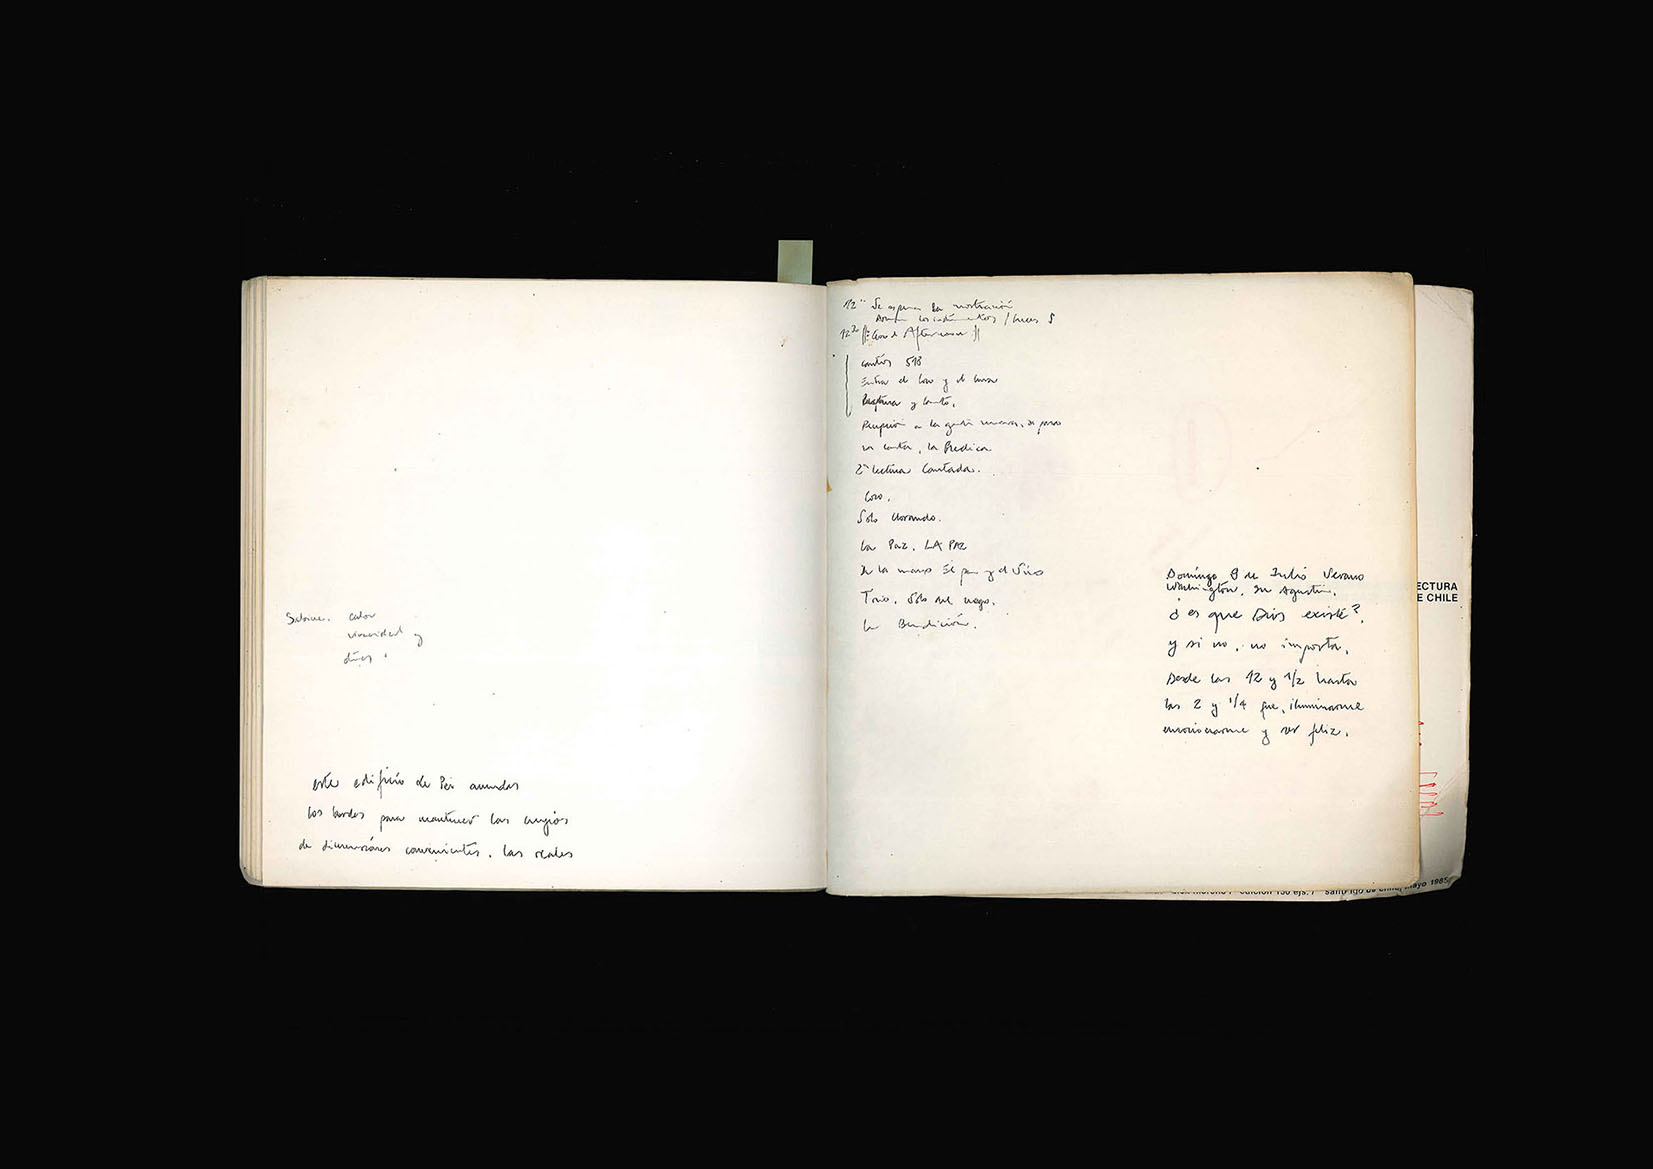 Sabine. calor
y
este edificio de Pei
los bordes para mantener las crujías
de dimensiones convenientes. las reales
12 Se espera la
los instrumentos / luces
12
cantos 518
Entra el coro y el cura
y canto.
Recepción a la gente nueva, se paran
se canta, la Predica
2ª lectura Cantada.
Coro.
Solo llorando.
La Paz. LA PAZ
De la mano El pan y el Vino
Trio. Solo de negro.
la Bendición.
Domingo 9 de Julio Verano
Washington, Sn Agustin.
¿ es que Dios existe?.
y si no, no importa.
Desde las 12 y 1/2 hasta
las 2 y 1/4 fue, iluminarme
emocionarme y ser feliz.
ECTURA
E CHILE
edición 150 ejs. / santiago de chile, mayo 1985